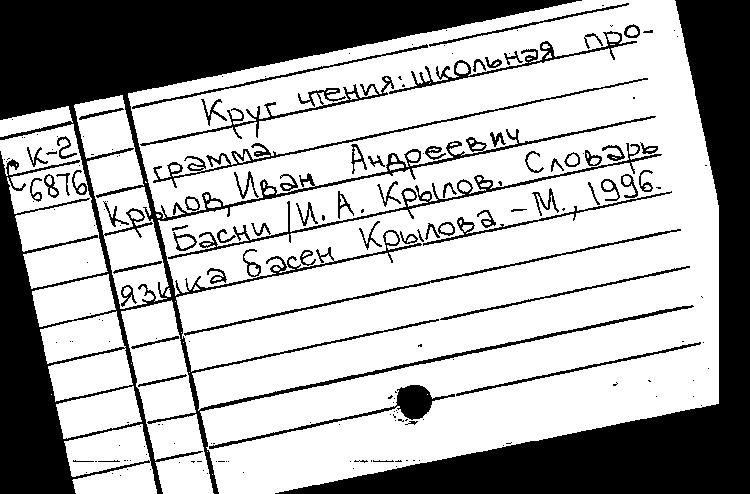 Круг чтения: школьная про-
грамма.
С К-2
6876
Крылов, Иван Андреевич
Басни / И. А. Крылов. Словарь
языка басен Крылова. – М., 1996.